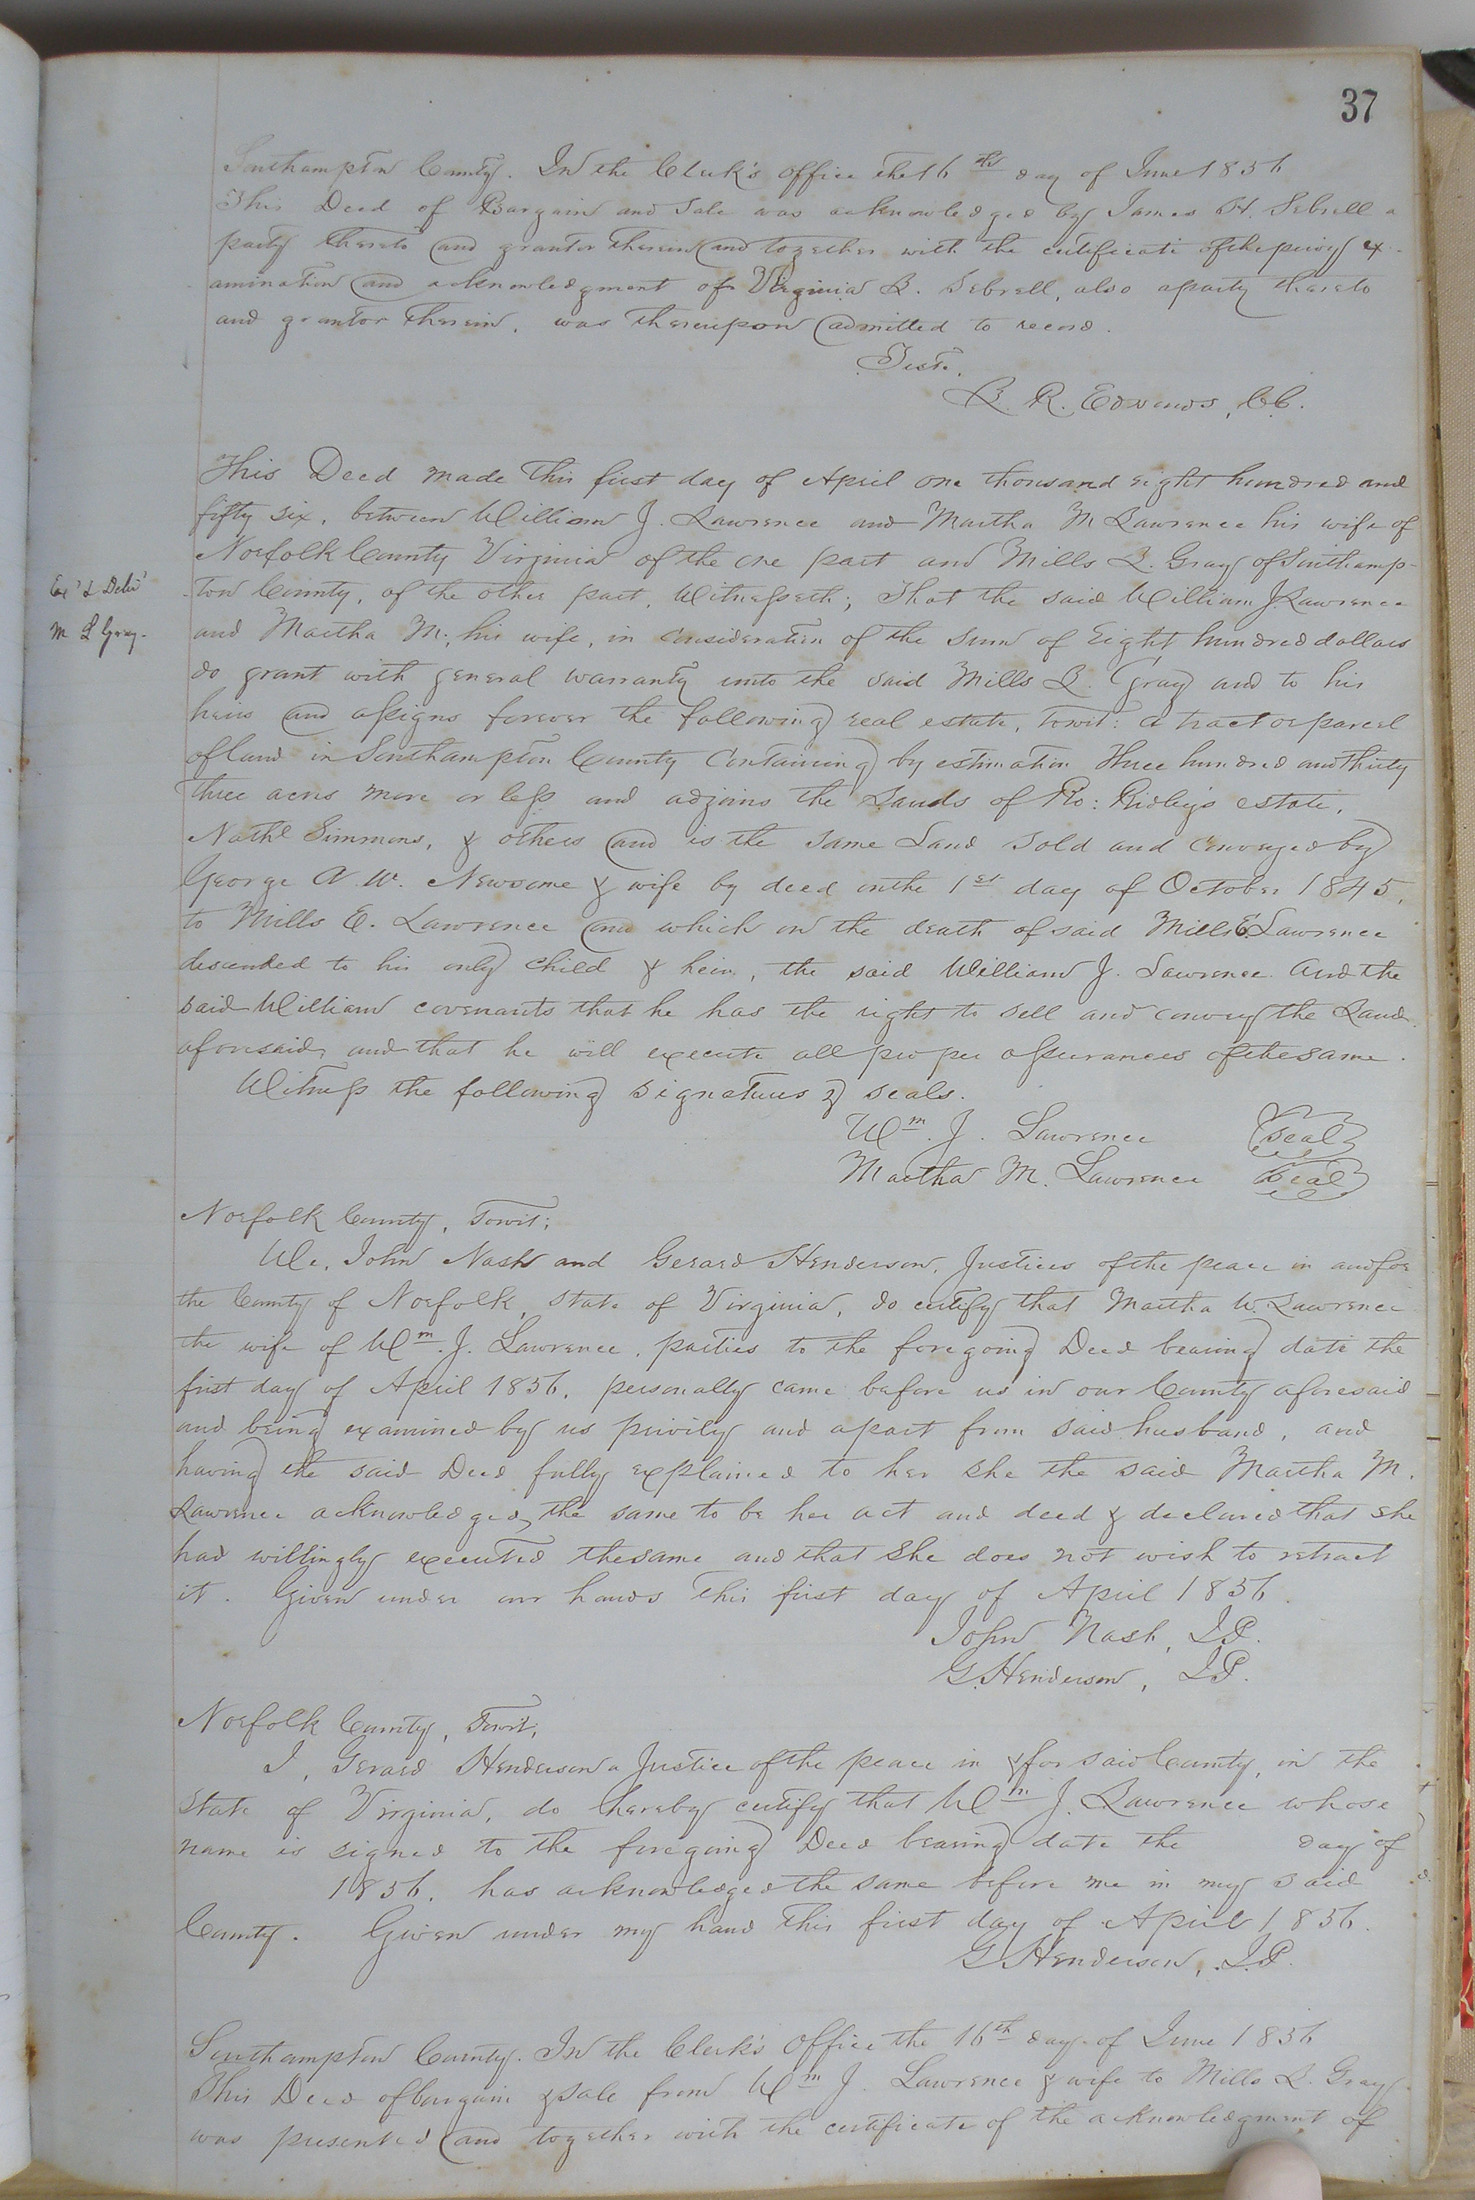 37
Southampton County. In the Clerk's office the 16th day of June 1856
This Deed of Bargain and Sale was acknowledged by James H. Sebrell a
party thereto and grantor therein and together with the certificate of the privy ex-
amination and acknowledgment of Virginia B. Sebrell, also a party thereto
and grantor therein, was thereupon admitted to record.
Teste.
L. R. Edwards, C.C.
This Deed made this first day of April one thousand eight hundred and
fifty six, between William J. Lawrence and Martha M Lawrence his wife of
Norfolk County Virginia of the one part and Mills L. Gray of Southamp-
Ex'd & Deliv'd
ton County, of the other part, Witnesseth; That the said William J Lawrence
M L Gray.
and Martha M; his wife, in consideration of the sum of Eight hundred dollars
do grant with general warranty unto the said Mills L. Gray and to his
heirs and assigns forever the following real estate, towit: a tract or parcel
of land in Southampton County Containing by estimation three hundred and thirty
three acres more or less and adjoins the Lands of Ro: Ridley's estate,
Nathl Simmons, & others and is the same Land sold and conveyed by
George A. W. Newsome & wife by deed on the 1st day of October 1845,
to Mills E. Lawrence and which on the death of said Mills E Lawrence
descended to his only child & heir, the said William J. Lawrence. And the
said William covenants that he has the right to sell and convey the Land
aforesaid, and that he will execute all proper assurances of the same.
Witness the following signatures & seals.
Wm. J. Lawrence Seal
Martha M. Lawrence Seal
Norfolk County, Towit;
We, John Nash and Gerard Henderson, Justices of the peace in and for
the County of Norfolk, State of Virginia, do certify that Martha W. Lawrence
the wife of Wm. J. Lawrence, parties to the foregoing Deed bearing date the
first day of April 1856, personally came before us in our County aforesaid
and being examined by us privily and apart from said husband, and
having the said Deed fully explained to her she the said Martha M.
Lawrence acknowledged, the same to be her act and deed & declared that she
had willingly executed the same and that she does not wish to retract
it. Given under our hands this first day of April 1856.
John Nash, J.P.
G. Henderson, J.P.
Norfolk County, Towit,
I, Gerard Henderson a Justice of the peace in & for said County, in the
State of Virginia, do hereby certify that Wm J. Lawrence whose
name is signed to the foregoing Deed bearing date the day of
1856, has acknowledged the same before me in my said
County. Given under my hand this first day of April 1856.
G. Henderson, J.P.
Southampton County. In the Clerk's Office the 16th day of June 1856
This Deed of bargain & sale from Wm J. Lawrence & wife to Mills L. Gray
was presented and together with the certificate of the acknowledgment of